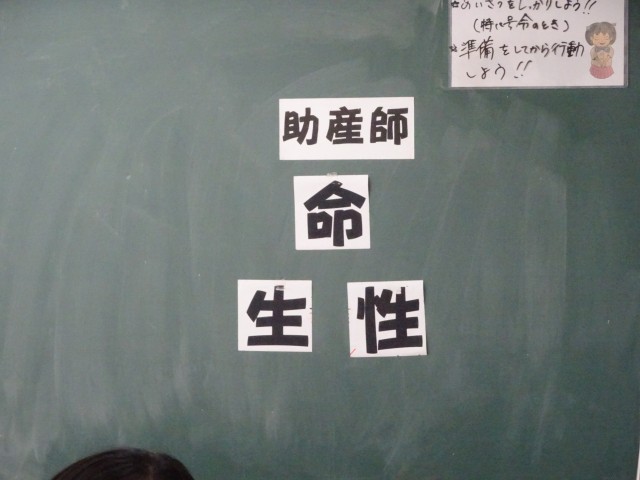 あいさつをしっかりしよう!!
(特に号令のとき)
準備をしてから行動
しよう!!
助産師
命
生 性